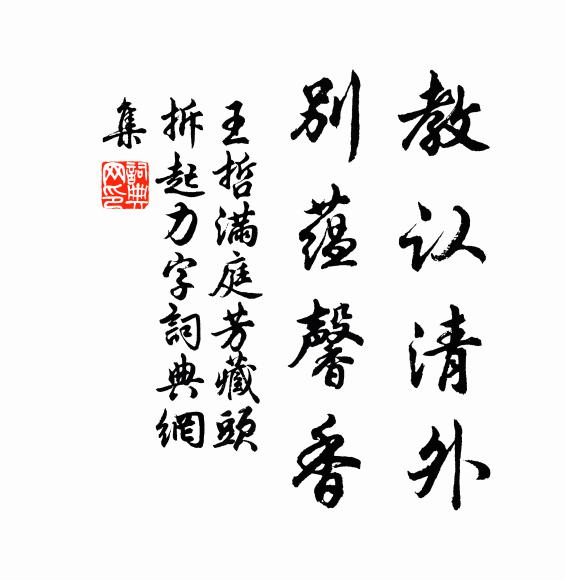 教认清外
别蕴馨香
王哲满庭芳藏頭
拆起力字詞典網
集
詞典
网印